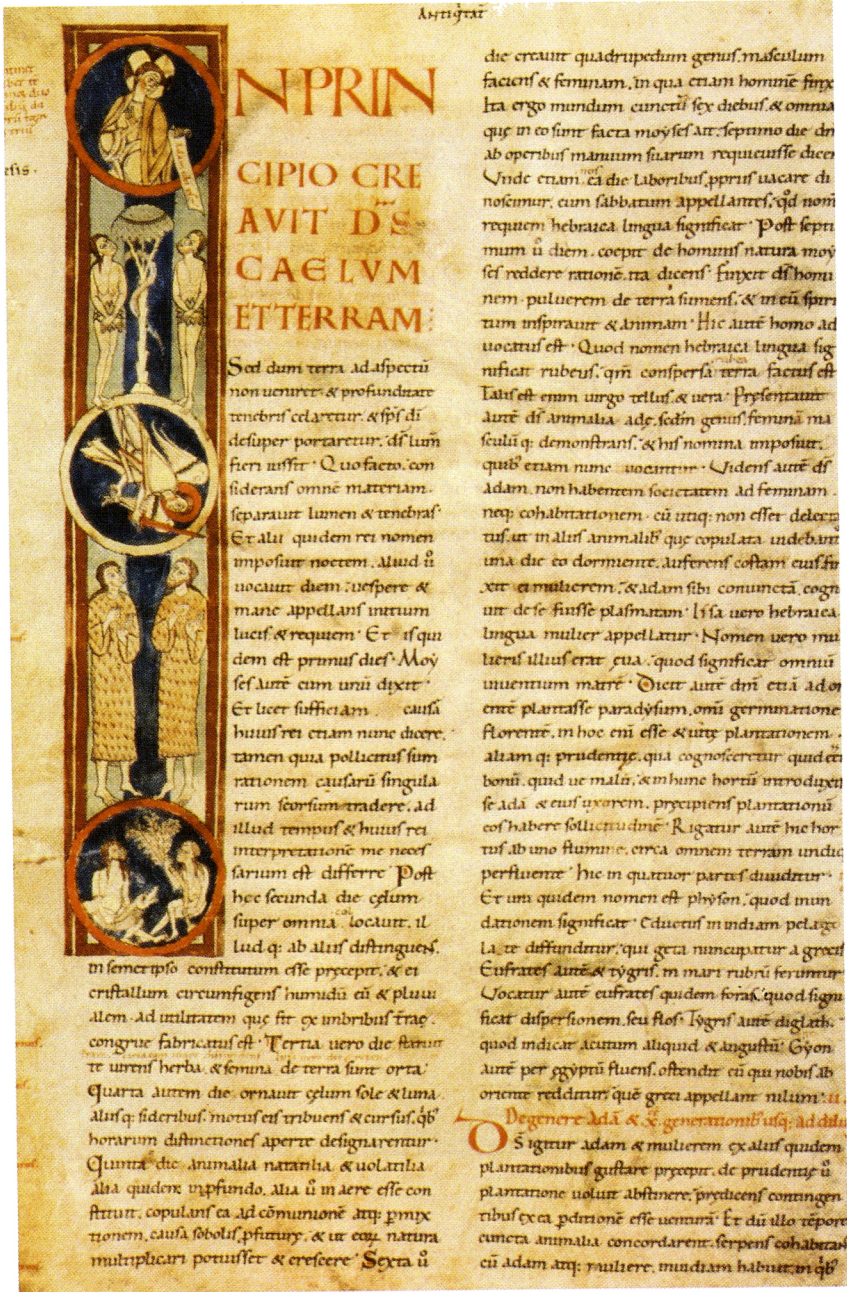 ANTIQ̄TAT̄
esis.
N PRIN
CIPIO CRE
AVIT D̄S
CAELVM
ET TERRAM:
Sed dum terra ad aspectū
non ueniret. & profunditate
tenebris celaretur. & sp̄s dī
desuper portaretur. d̄s lum̄
fieri iussit. Quo facto. con
siderans omnē materiam.
separauit lumen & tenebras.
Et alii quidem rei nomen
imposuit noctem. aliud ū
uocauit diem. uespere &
mane appellans initium
lucis & requiem. Et is qui
dem est primus dies. Moy
ses autē eum unū dixit.
Et licet sufficiam causā
huius rei etiam nunc dicere.
tamen quia pollicitus sum
rationem causarū singula
rum seorsum tradere. ad
illud tempus & huius rei
interpretationē me neces
sarium est differre. Post
hec secunda die cęlum
super omnia locauit. il
lud q: ab aliis distinguens.
in semetipso constitutum esse pręcepit. & ei
cristallum circumfigens humidū eū & pluui
alem. ad utilitatem quę fit ex imbribus terrę.
congrue fabricatus est. Tertia uero die statuit
te uirens herba. & semina de terra sunt orta.
Quarta autem die ornauit cęlum sole & luna.
aliisq: sideribus. motus eis tribuens & cursus. q̄b'
horarum distinctiones aperte designarentur.
Quinta die animalia natatilia & uolatilia
alia quidem in p̱fundo. alia ū in aere esse con
stituit. copulans ea ad cōmunionē atq: p̱mix
tionem. causa sobolis p̱futurę. & ut eoꝝ natura
multiplicari potuisset & crescere. Sexta ū
die creauit quadrupedum genus. masculum
faciens & feminam. in qua etiam hominē finx
Ita ergo mundum cunctū sex diebus. & omnia
quę in eo sunt facta moyses ait. septimo die dn̄
ab operibus manuum suarum requieuisse dicen
Vnde etiam nos ea die laboribus p̱priis uacare di
noscimur. eum sabbatum appellantes. qđ nom̄
requiem hebraica lingua significat. Post septi
mum ū diem. coepit de hominis natura moy
ses reddere rationē. ita dicens. Finxit d̄s homi
nem puluerem de terra sumens. & in eū spiri
tum inspirauit & animam. Hic autē homo ad
uocatus est. Quod nomen hebraica lingua sig
nificat rubeus. qm̄ conspersa terra factus est
Talis est enim uirgo tellus & uera. Pręsentauit
autē d̄s animalia adę. sedm̄ genus. feminā ma
sculū q: demonstrans. & his nomina imposuit.
quib' etiam nunc uocantur. Videns autē d̄s
adam. non habentem societatem ad feminam.
neq: cohabitationem. cū utiq: non esset delecta
tus. ut in aliis animalib' quę copulata uidebant
una die eo dormiente. auferens costam eius fin
xit ei mulierem. & adam sibi coniunctā. cogn
uit de se fuisse plasmatam. Issa uero hebraica
lingua mulier appellatur. Nomen uero mu
lieris illius erat ęua. quod significat omniū
uiuentium matrē. Dicit autē dm̄ etiā ad or
entē plantasse paradysum. omi germinatione
florentē. in hoc eni esse & uitę plantationem.
aliam q: prudentię. qua cognosceretur quid et
bonū. quid ue malū. & in hunc hortū introduxis
se adā & eius uxorem. pręcipiens plantationū
eos habere sollicitudinē. Rigatur autē hic hor
tus ab uno flumine. circa omnem terram undiq
perfluente. hic in quatuor partes diuiditur.
Et uni quidem nomen est physon. quod inun
dationem significat. Eductus in indiam pelagi
la te diffunditur. qui geta nuncupatur a grecis
Eufrates autē & tygris. in mari rubrū feruntur
Vocatur autē eufrates quidem foras. quod signi
ficat dispersionem. seu flos. Tygris autē diglath.
quod indicat acutum aliquid & angustū. Gyon
autē per ęgyptū fluens. ostendit eū qui nobis ab
oriente redditur. quē greci appellant nilum.
De genere Adā & X generationib' usq: ad dilu
OS igitur adam & mulierem ex aliis quidem
plantationibus gustare pręcepit. de prudentię ū
plantatione uoluit abstinere. pręedicens contingen
tibus ex ea p̱ditionē esse uenturā. Et dū illo tēpore
cuncta animalia concordarent. serpens cohabitans
cū adam atq: muliere. inuidiam habuit. in q̄b'